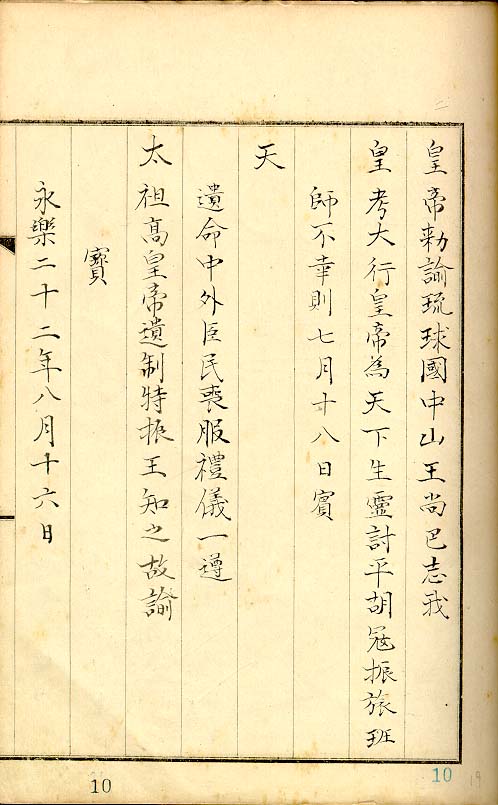 皇帝勅諭琉球國中山王尚巴志我
皇考大行皇帝為天下生靈討平胡冦振旅班
師不幸則七月十八日賓
天
遺命中外臣民喪服禮儀一遵
太祖高皇帝遺制特振王知之故諭
寶
永樂二十二年八月十六日
10
10
19